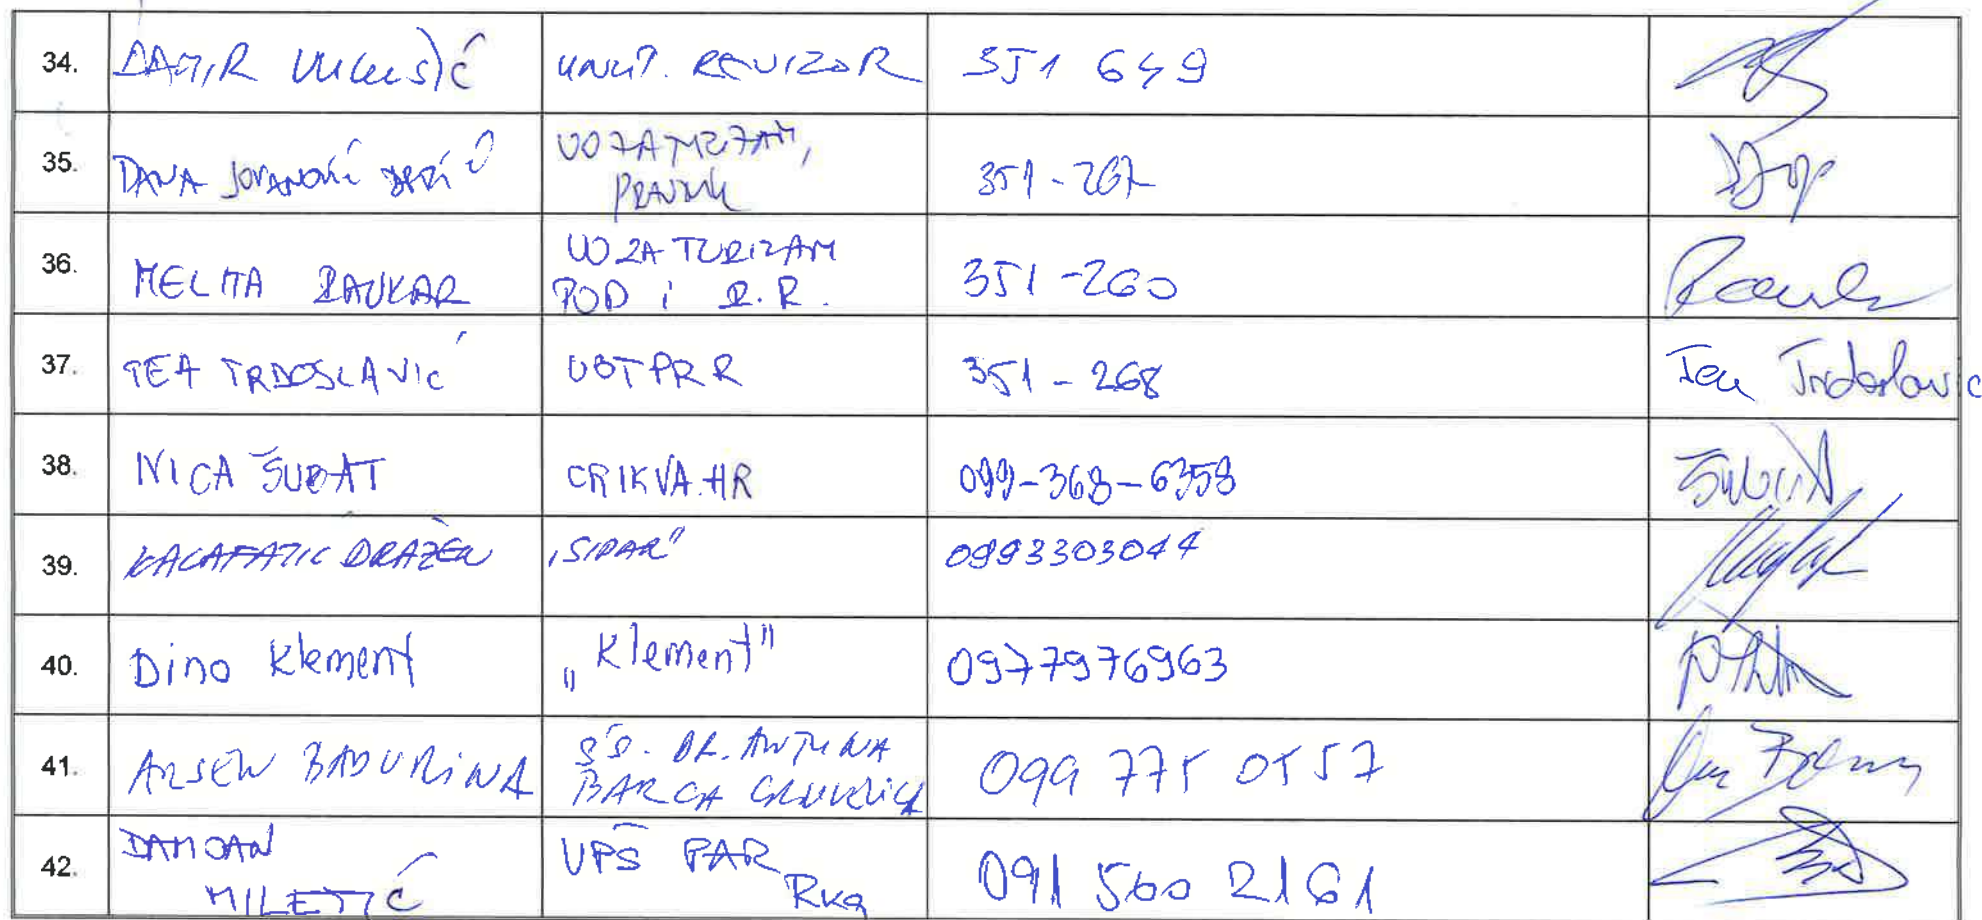 34. DAMIR VUKUŠIĆ UNUT. REVIZOR 351 649
35. DANA JOVANOVIĆ UO ZA TURIZAM,
PRAVNIK 351-267
36. MELITA RAUKAR UO ZA TURIZAM
POD i R.R. 351-260
37. TEA TRDOSLAVIĆ UOTPRR 351-268 Tea Trdoslavić
38. IVICA ŠUBAT CRIKVA.HR 099-368-6358
39. KALAFATIC DRAŽEN "SIPAR" 0993303044
40. Dino Klement „Klement" 0977976963
41. ARSEN BADURINA SŠ. DR. ANTUNA
BARCA CRIKVENICA 099 775 0557
42. DAMJAN
MILETIĆ UPŠ PAR
Rka 091 560 2161